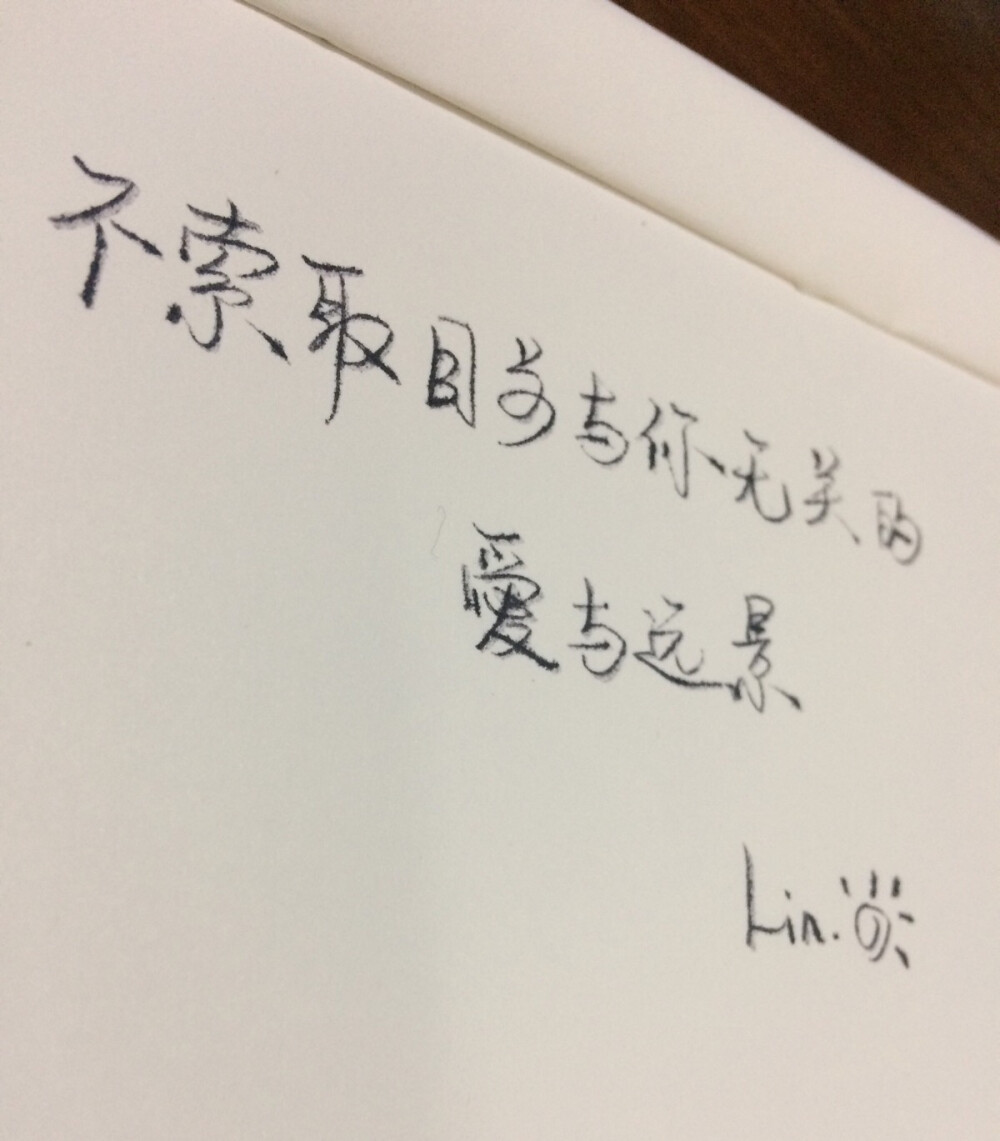 不索取目前与你无关的
爱与远景
Lin.